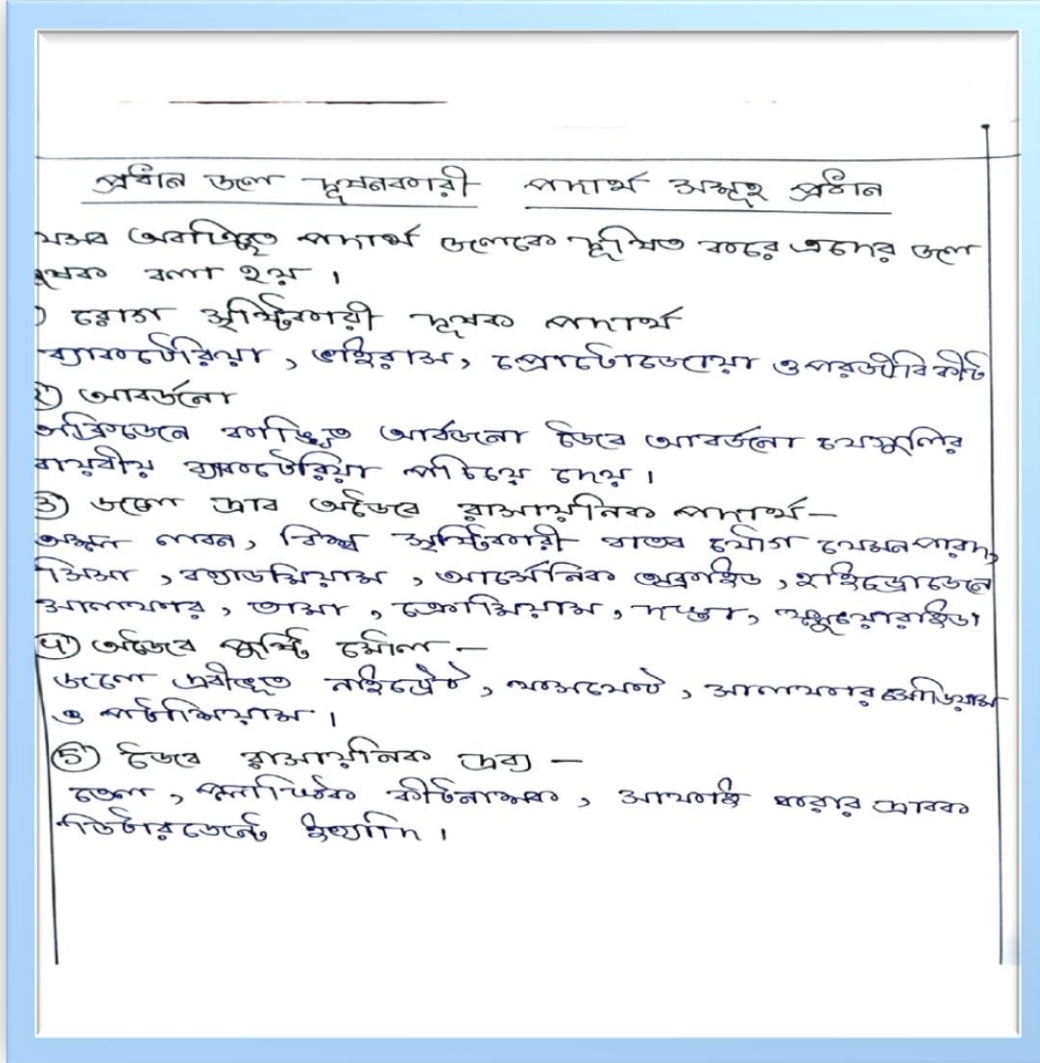 প্রধান জল দূষনকারী পদার্থ সমূহ প্রধান
যেসব অবাঞ্ছিত পদার্থ জলেকে দূষিত করে এদের জল
দূষক বলা হয় ।
১) রোগ সৃষ্টিকারী দূষক পদার্থ
ব্যাকটেরিয়া, ভাইরাস, প্রোটোজোয়া ও পরজীবি কীট
২) আবর্জনা
অক্সিজেন কাঙ্খিত আর্বজনা জৈব আবর্জনা যেগুলির
বায়বীয় ব্যাকটেরিয়া পচিয়ে দেয় ।
৩) জলে দ্রাব অজৈব রাসায়নিক পদার্থ –
অম্ল লবন, বিষ সৃষ্টিকারী ধাতব যৌগ যেমন পারদ,
সিসা, ক্যাডমিয়াম, আর্সেনিক অক্সাইড, হাইড্রোজেন
সালফার, তামা, ক্রোমিয়াম, দস্তা, ফ্লুয়োরাইড।
৪) অজৈব পুষ্টি মৌল –
জলে দ্রবীভূত নাইট্রেট, ফসফেট, সালফার সোডিয়াম
ও পটাসিয়াম ।
৫) জৈব রাসায়নিক দ্রব্য –
তেল, প্লাস্টিক কীটনাশক, সাফাই করার দ্রাবক
ডিটারজেন্ট ইত্যাদি ।